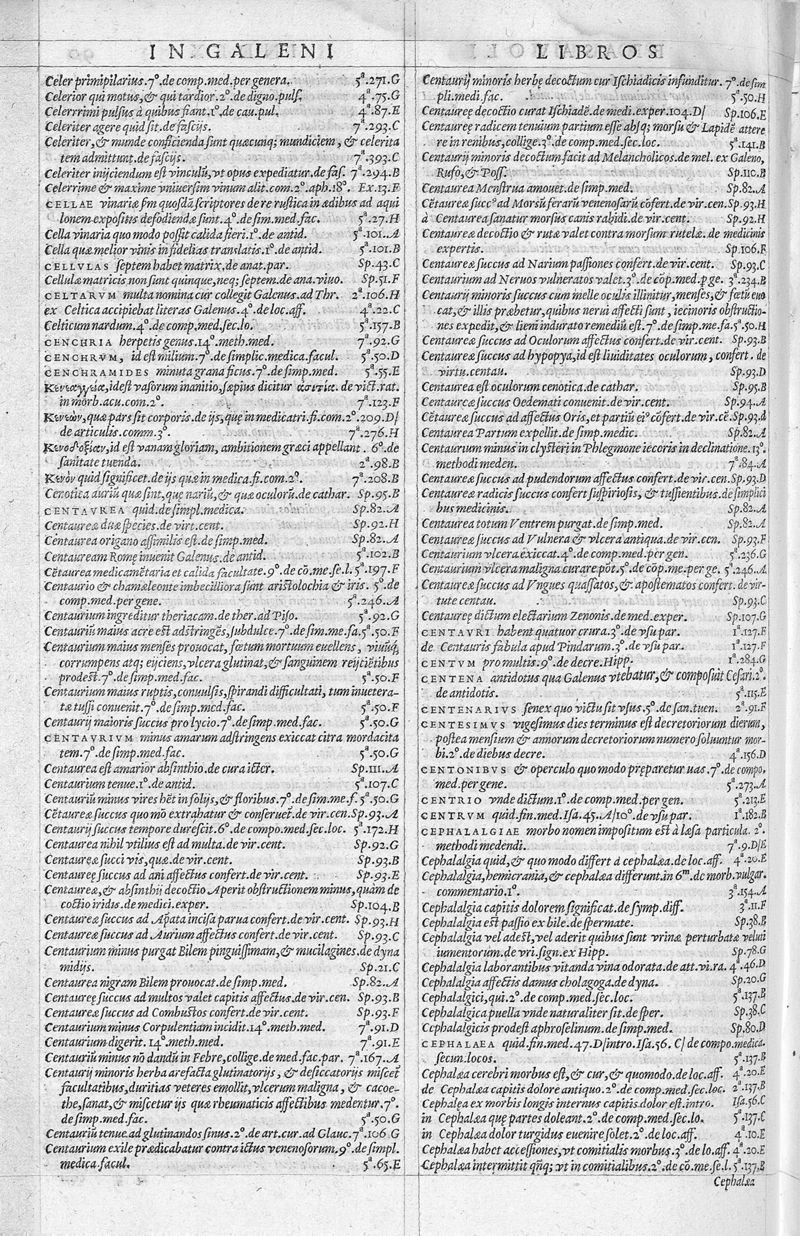 IN GALENI
LIBROS
Celer primipilarius.7º.de comp.med.per genera. 5ª.271.G
Celerior qui motus,& qui tardior.2º.de digno.puls. 4ª.75.G
Celerrimi pulsus à quibus fiant.1º.de cau.pul. 4ª.87.E
Celeriter agere quid sit.de fascijs. 7ª.293.C
Celeriter,& munde conficienda sunt quæcunq; mundiciem,& celerita
tem admittunt.de fascijs. 7ª.393.C
Celeriter inijciendum est vinculũ,vt opus expediatur.de fas. 7ª.294.B
Celerime & maxime vniuersim vinum alit.com.2º.aph.18º. Ex.13.F
CELLAE vinariæ ſm quosdã scriptores de re rustica in ædibus ad aqui
lonem expositis defodiendæ sunt.4º.de sim.med.fac. 5ª.27.H
Cella vinaria quo modo possit calida fieri.1º.de antid. 5ª.101.A
Cella quæ melior vinis in fidelias translatis.1º.de antid. 5ª.101.B
CELLVLAS septem habet matrix.de anat.par. Sp.43.C
Cellulæ matricis non sunt quinque,neq; septem.de ana.viuo. Sp.51.F
CELTARVM multa nomina cur collegit Galenus.ad Thr. 2ª.106.H
ex Celtica accipiebat literas Galenus.4º.de loc.aff. 4ª.22.C
Celticum nardum.4º.de comp.med.sec.lo. 5ª.157.B
CENCHRIA herpetis genus.14º.meth.med. 7ª.92.G
CENCHRVM, id est milium.7º.de simplic.medica.facul. 5ª.50.D
CENCHRAMIDES minuta grana ficus.7º.de simp.med. 5ª.55.E
Κενεαγγεία,idest vasorum inanitio,sæpius dicitur ἀσιτία.de vict.rat.
in morb.acu.com.2º. 7ª.123.F
Κενεὼν,quæ pars sit corporis.de ijs,quę in medicatri.fi.com.2º.209.D/
de articulis.comm.3º. 7ª.276.H
Κενοδοξίαν,id est vanam gloriam, ambitionem græci appellant. 6º.de
sanitate tuenda. 2ª.98.B
Κενὸν quid significet.de ijs quæ in medica.fi.com.2º. 7ª.208.B
Cenotica auriũ quæ sint,quę nariũ,& quæ oculorũ.de cathar. Sp.95.B
CENTAVREA quid.de simpl.medica. Sp.82.A
Centaureæ duæ species.de virt.cent. Sp.92.H
Centaurea origano assimilis est.de simp.med. Sp.82.A
Centauream Romę inuenit Galenus.de antid. 5ª.102.B
Cẽtaurea medicamẽtaria et calida facultate.9º.de cõ.me.se.l. 5ª.197.F
Centaurio & chamæleonte imbecilliora sunt aristolochia & iris. 5º.de
comp.med.per gene. 5ª.246.A
Centaurium ingreditur theriacam.de ther.ad Piso. 5ª.92.G
Centauriũ maius acre est adstringẽs,subdulce.7º.de sim.me.fa.5ª.50.F
Centaurium maius menses prouocat, fœtum mortuum euellens, viuũq́;
corrumpens atq; eijciens,vlcera glutinat,& sanguinem reijciẽtibus
prodest.7º.de simp.med.fac. 5ª.50.F
Centaurium maius ruptis, conuulsis,spirandi difficultati, tum inuetera-
tæ tussi conuenit.7º.de simp.med.fac. 5ª.50.F
Centaurij maioris succus pro lycio.7º.de simp.med.fac. 5ª.50.G
CENTAVRIVM minus amarum adstringens exiccat citra mordacita
tem.7º.de simp.med.fac. 5ª.50.G
Centaurea est amarior absinthio.de cura icter. Sp.111.A
Centaurium tenue.1º.de antid. 5ª.107.C
Centauriũ minus vires hẽt in folijs,& floribus.7º.de sim.me.f. 5ª.50.G
Cẽtaureæ succus quo mõ extrahatur & conseruet́.de vir.cen.Sp.93.A
Centaurij succus tempore durescit.6º.de compo.med.sec.loc. 5ª.172.H
Centaurea nihil vtilius est ad multa.de vir.cent. Sp.92.G
Centaureæ succi vis,quæ.de vir.cent. Sp.93.B
Centaureę succus ad ani affectus confert.de vir.cent. Sp.93.E
Centaureæ,& absinthij decoctio Aperit obstructionem minus,quàm de
coctio iridis.de medici.exper. Sp.104.B
Centaureæ succus ad Apata incisa parua confert.de vir.cent. Sp.93.H
Centaureæ succus ad Aurium affectus confert.de vir.cent. Sp.93.C
Centaurium minus purgat Bilem pinguissimam,& mucilagines.de dyna
midijs. Sp.21.C
Centaurea nigram Bilem prouocat.de simp.med. Sp.82.A
Centaureę succus ad multos valet capitis affectus.de vir.cen. Sp.93.B
Centaureæ succus ad Combustos confert.de vir.cent. Sp.93.F
Centaurium minus Corpulentiam incidit.14º.meth.med. 7ª.91.D
Centaurium digerit.14º.meth.med. 7ª.91.E
Centauriũ minus nõ dandũ in Febre,collige.de med.fac.par. 7ª.167.A
Centaurij minoris herba arefacta glutinatorijs, & desiccatorijs miscet́
facultatibus,duritias veteres emollit,vlcerum maligna, & cacoe-
the,sanat,& miscetur ijs quæ rheumaticis affectibus medentur.7º.
de simp.med.fac. 5ª.50.G
Centauriũ tenue.ad glutinandos sinus.2º.de art.cur.ad Glauc.7ª.106 G
Centaurium exile prædicabatur contra ictus venenosorum.9º.de simpl.
medica.facul. 5ª.65.E
Centaurij minoris herbę decoctum cur Ischiadicis infunditur. 7º.de sim
pli.medi.fac. 5ª.50.H
Centaureę decoctio curat Ischiadẽ.de medi.exper.104.D/ Sp.106.E
Centaureę radicem tenuium partium esse absq; morsu & Lapidẽ attere
re in renibus,collige.3º.de comp.med.sec.loc. 5ª.141.B
Centaurij minoris decoctum facit ad Melancholicos.de mel.ex Galeno,
Rufo,& Poss. Sp.110.B
Centaurea Menstrua amouet.de simp.med. Sp.82.A
Cẽtaureæ succº ad Morsũ ferarũ venenosarũ cõfert.de vir.cen.Sp.93.H
à Centaurea sanatur morsus canis rabidi.de vir.cent. Sp.92.H
Centaureæ decoctio & rutæ valet contra morsum rutelæ.de medicinis
expertis. Sp.106.F
Centaureæ succus ad Narium passiones confert.de vir.cent. Sp.93.C
Centaurium ad Neruos vulneratos valet.3º.de cõp.med.p ge. 3ª.234.B
Centaurij minoris succus cum melle oculis illinitur,menses,& fœtũ euo
cat,& illis præbetur,quibus nerui affecti sunt, iecinoris obstructio-
nes expedit,& lieni indurato remediũ est.7º.de simp.me.fa.5ª.50.H
Centaureæ succus ad Oculorum affectus confert.de vir.cent. Sp.93.B
Centaureæ succus ad hypopya,id est liuiditates oculorum, confert. de
virtu.centau. Sp.93.D
Centaurea est oculorum cenotica.de cathar. Sp.95.B
Centaureæ succus Oedemati conuenit.de vir.cent. Sp.94.A
Cẽtaureæ succus ad affectus Oris,et partiũ eiº cõfert.de vir.cẽ.Sp.93.d
Centaurea Partum expellit.de simp.medic. Sp.82.A
Centaurium minus in clysteri in Phlegmone iecoris in declinatione.13º.
methodi meden. 7ª.84.A
Centaureæ succus ad pudendorum affectus confert.de vir.cen.Sp.93.D
Centaureæ radicis succus confert suspiriosis, & tussientibus.de simplici
bus medicinis. Sp.82.A
Centaurea totum Ventrem purgat.de simp.med. Sp.82.A
Centaureæ succus ad Vulnera & vlcera antiqua.de vir.cen. Sp.93.F
Centaurium vlcera exiccat.4º.de comp.med.per gen. 5ª.236.G
Centaurium vlcera maligna curare põt.5º.de cõp.me.per ge. 5ª.246.A
Centaureæ succus ad Vngues quassatos,& apostematos confert.de vir-
tute centau. Sp.93.C
Centaureę dictum electarium Zenonis.de med.exper. Sp.107.G
CENTAVRI habent quatuor crura.3º.de vsu par. 1ª.127.E
de Centauris fabula apud Pindarum.3º.de vsu par. 1ª.127.F
CENTVM pro multis.9º.de decre.Hipp. 1ª.284.G
CENTENA antidotus qua Galenus vtebatur,& composuit Cesari.2º.
de antidotis. 5ª.115.E
CENTENARIVS senex quo victu sit vsus.5º.de san.tuen. 2ª.91.F
CENTESIMVS vigesimus dies terminus est decretoriorum dierum,
postea mensium & annorum decretoriorum numero soluuntur mor-
bi.2º.de diebus decre. 4ª.156.D
CENTONIBVS & operculo quo modo pręparetur uas.7º.de compo.
med.per gene. 5ª.273.A
CENTRIO vnde dictum.1º.de comp.med.per gen. 5ª.213.E
CENTRVM quid.fin.med.Isa.45.A/10º.de vsu par. 1ª.182.B
CEPHALALGIAE morbo nomen impositum est à læsa particula. 2º.
methodi medendi. 7ª.9.D/E
Cephalalgia quid,& quo modo differt à cephalæa.de loc.aff. 4ª.20.E
Cephalalgia,hemicrania,& cephalæa differunt.in 6ᵐ.de morb.vulgar.
commentario.1º. 3ª.154.A
Cephalalgia capitis dolorem significat.de symp.diff. 3ª.11.F
Cephalalgia est passio ex bile.de spermate. Sp.38.B
Cephalalgia vel adest,vel aderit quibus sunt vrinæ perturbatæ veluti
iumentorum.de vri.sign.ex Hipp. Sp.78.G
Cephalalgia laborantibus vitanda vina odorata.de att.vi.ra. 4ª.46.D
Cephalalgia affectis damus cholagoga.de dyna. Sp.20.G
Cephalalgici,qui.2º.de comp.med.sec.loc. 5ª.137.B
Cephalalgica puella vnde naturaliter sit.de sper. Sp.38.C
Cephalalgicis prodest aphroselinum.de simp.med. Sp.80.D
CEPHALAEA quid.fin.med.47.D/intro.Isa.56. C/ de compo.medica.
secun.locos. 5ª.137.B
Cephalæa cerebri morbus est,& cur,& quomodo.de loc.aff. 4ª.20.E
de Cephalæa capitis dolore antiquo.2º.de comp.med.sec.loc. 2ª.137.B
Cephalęa ex morbis longis internus capitis dolor est.intro. Isa.56.C
in Cephalæa quę partes doleant.2º.de comp.med.sec.lo. 5ª.137.C
in Cephalæa dolor turgidus euenire solet.2º.de loc.aff. 4ª.10.E
Cephalæa habet accessiones,vt comitialis morbus.3º.de lo.aff. 4ª.20.E
Cephalæa intermittit qñq; vt in comitialibus.2º.de cõ.me.se.l. 5ª.137.B
Cephalæa